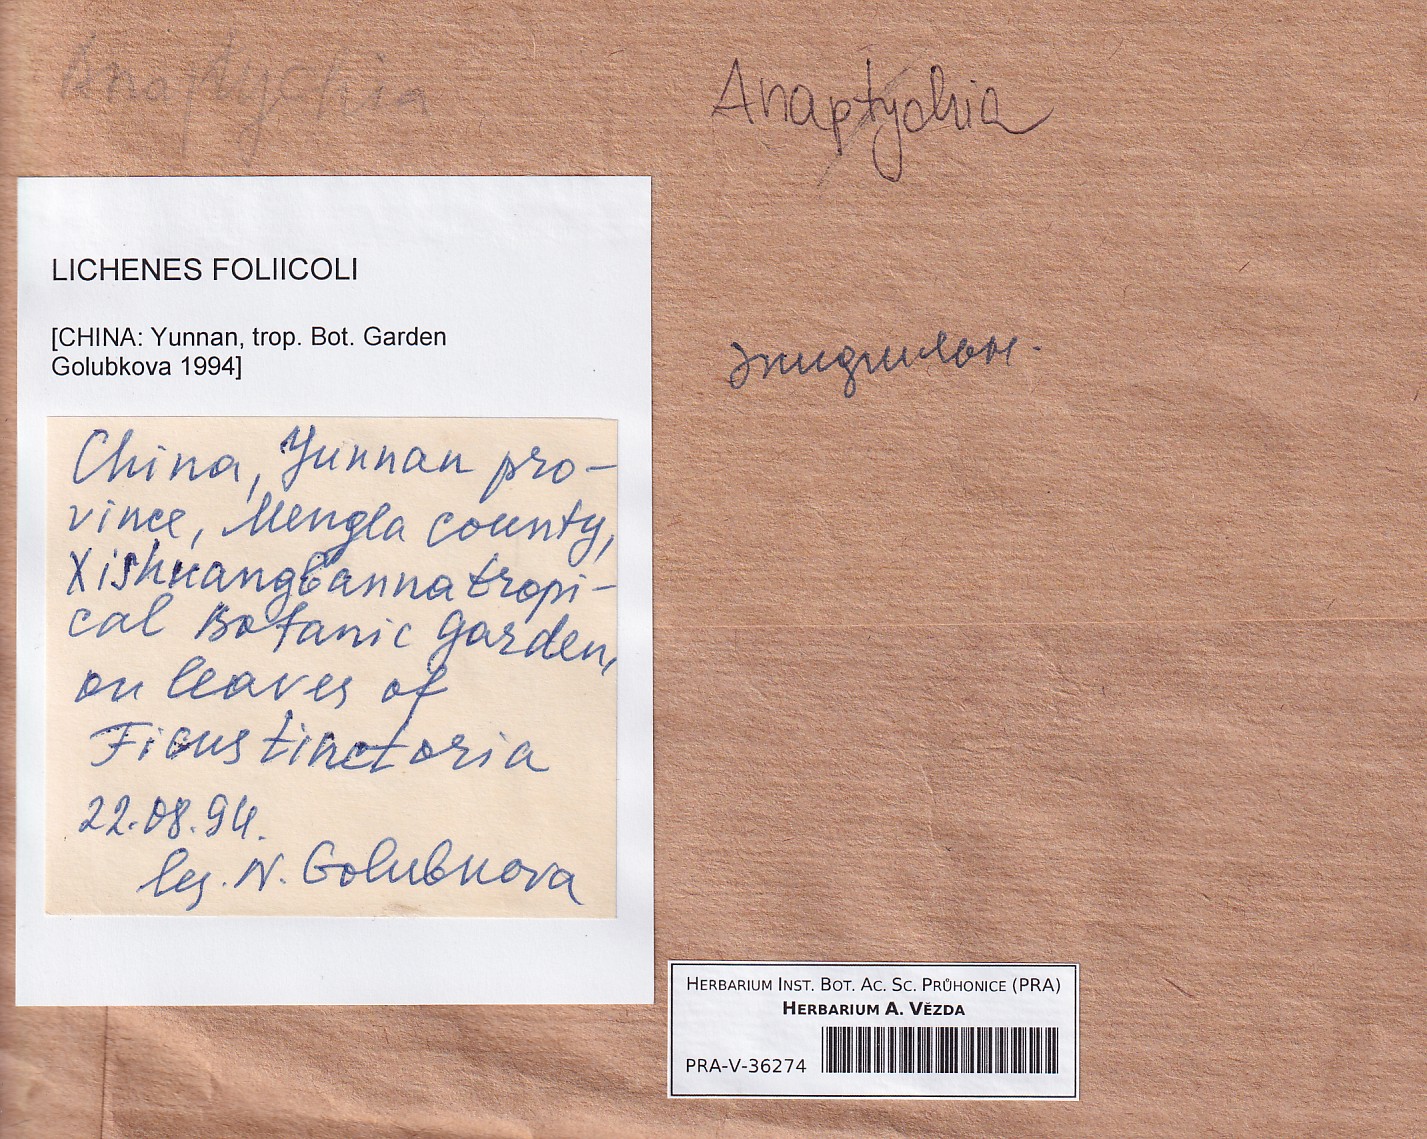 Anaptychia
Anaptychia
LICHENES FOLIICOLI
[CHINA: Yunnan, trop. Bot. Garden
Golubkova 1994]
эпифильн.
China, Yunnan pro-
vince, Mengla county,
Xishuangbanna tropi-
cal Botanic Garden,
on leaves of
Ficus tinctoria
22.08.94.
leg. N. Golubkova
HERBARIUM INST. BOT. AC. SC. PRŮHONICE (PRA)
HERBARIUM A. VĚZDA
PRA-V-36274